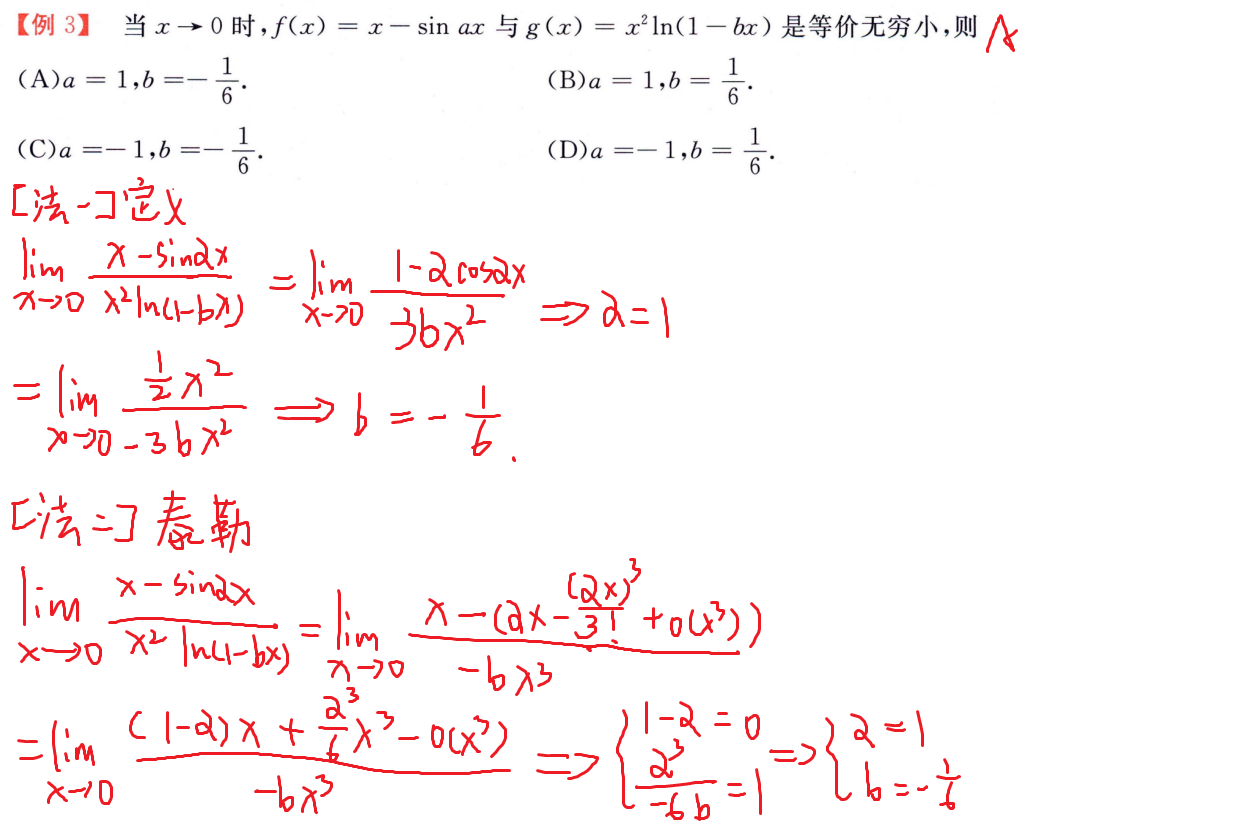 【例 3】 当 x → 0 时, f(x) = x − sin ax 与 g(x) = x²ln(1 − bx) 是等价无穷小,则 A
(A)a = 1,b = −1/6. (B)a = 1,b = 1/6.
(C)a = −1,b = −1/6. (D)a = −1,b = 1/6.
[法一]定义
lim x→0 (x − sin ax)/(x² ln(1−bx)) = lim x→0 (1 − a cos ax)/(3bx²) ⇒ a = 1
= lim x→0 (1/2 x²)/(−3bx²) ⇒ b = −1/6.
[法二]泰勒
lim x→0 (x − sin ax)/(x² ln(1−bx)) = lim x→0 (x − (ax − (ax)³/3! + o(x³)))/(−bx³)
= lim x→0 ((1−a)x + a³/6 x³ − o(x³))/(−bx³) ⇒ { 1−a = 0, a³/(−6b) = 1 ⇒ { a = 1, b = −1/6